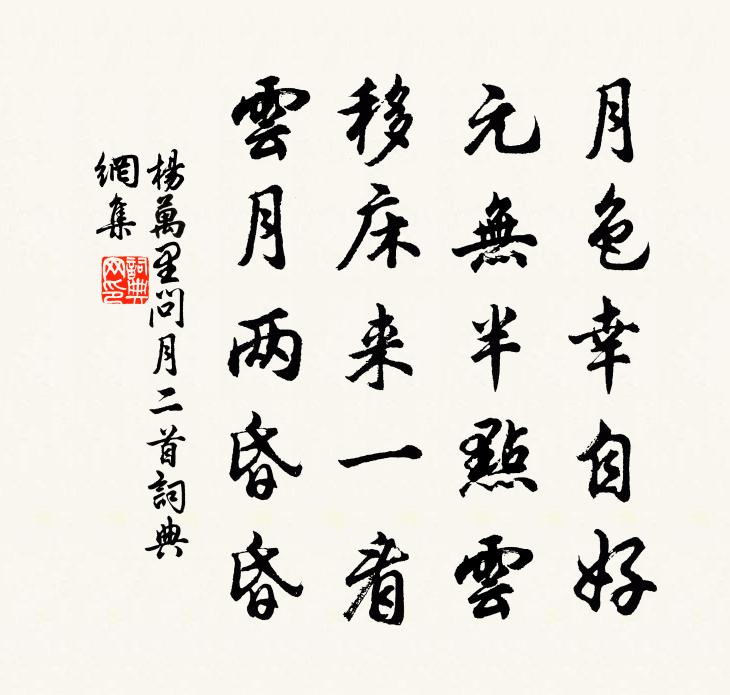 月色幸自好
元無半點雲
移床来一看
雲月两昏昏
楊萬里問月二首詞典
網集
詞典
网印